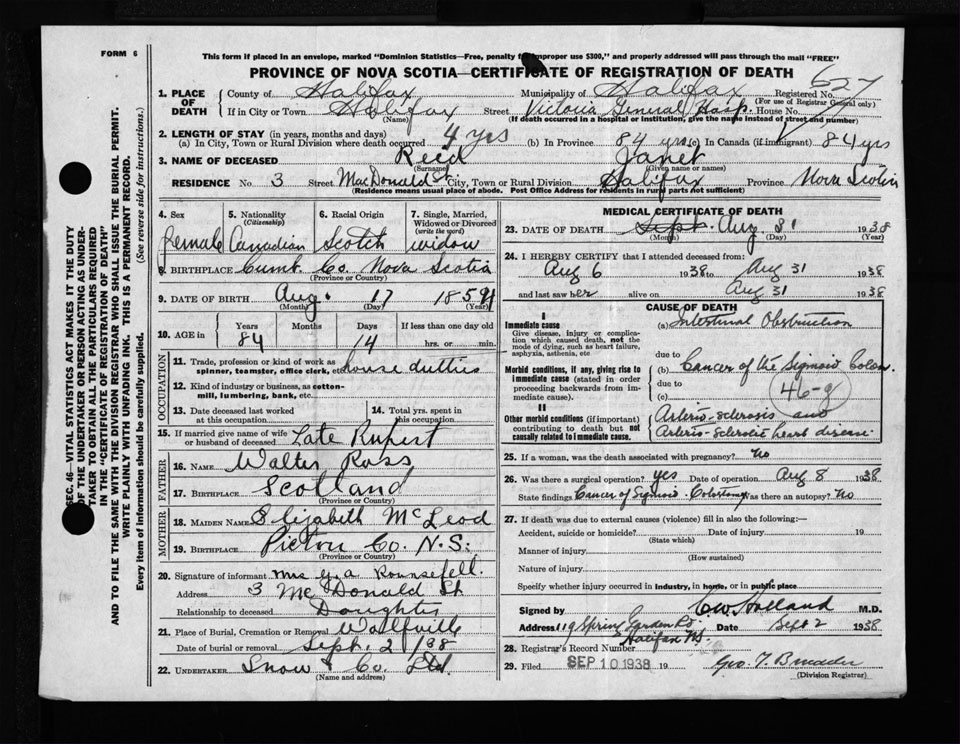 FORM 6
This form if placed in an envelope, marked "Dominion Statistics—Free, penalty for improper use $300," and properly addressed will pass through the mail "FREE"
PROVINCE OF NOVA SCOTIA—CERTIFICATE OF REGISTRATION OF DEATH
627
1. PLACE OF DEATH County of Halifax Municipality of Halifax Registered No.
(For use of Registrar General only)
If in City or Town Halifax Street Victoria General Hosp. House No.
(Name) (If death occurred in a hospital or institution, give the name instead of street and number)
2. LENGTH OF STAY (in years, months and days)
(a) In City, Town or Rural Division where death occurred 4 yrs (b) In Province 84 yrs (c) In Canada (if immigrant) 84 yrs
3. NAME OF DECEASED Reid Janet
(Surname) (Given name or names)
RESIDENCE No. 3 Street MacDonald St. City, Town or Rural Division Halifax Province Nova Scotia
(Residence means usual place of abode. Post Office Address for residents in rural parts not sufficient)
4. Sex 5. Nationality (Citizenship) 6. Racial Origin 7. Single, Married, Widowed or Divorced (write the word)
female Canadian Scotch widow
8. BIRTHPLACE Cumb. Co. Nova Scotia
(Province or Country)
9. DATE OF BIRTH Aug. 17
(Month) (Day) (Year)
10. AGE in Years Months Days If less than one day old
84 14 hrs. or min.
OCCUPATION
11. Trade, profession or kind of work as spinner, teamster, office clerk, etc. house dutties
12. Kind of industry or business, as cotton-mill, lumbering, bank, etc.
13. Date deceased last worked at this occupation
14. Total yrs. spent in this occupation
15. If married give name of wife or husband of deceased Late Rupert
FATHER
16. NAME Walter Ross
17. BIRTHPLACE Scotland
(Province or Country)
MOTHER
18. MAIDEN NAME Elizabeth McLeod
19. BIRTHPLACE Pictou Co. N.S.
(Province or Country)
20. Signature of informant Mrs G. A. Rounsefell.
Address 3 McDonald St.
Relationship to deceased Daughter
21. Place of Burial, Cremation or Removal Wolfville
Date of burial or removal Sept. 2 /38
22. UNDERTAKER Snow & Co. Ltd.
(Name and address)
MEDICAL CERTIFICATE OF DEATH
23. DATE OF DEATH Sept. Aug. 31 1938
(Month) (Day) (Year)
24. I HEREBY CERTIFY that I attended deceased from:
Aug 6 1938 to Aug 31 1938
and last saw her alive on Aug 31 1938
CAUSE OF DEATH
I
Immediate cause
Give disease, injury or complication which caused death, not the mode of dying, such as heart failure, asphyxia, asthenia, etc
(a) Intestinal Obstruction
due to
Morbid conditions, if any, giving rise to immediate cause (stated in order proceeding backwards from immediate cause).
(b) Cancer of the Sigmoid Colon.
due to
(c)
46-g
II
Other morbid conditions (if important) contributing to death but not causally related to immediate cause.
Arterio-sclerosis and
Arterio-sclerotic heart disease.
25. If a woman, was the death associated with pregnancy? No
26. Was there a surgical operation? yes Date of operation Aug 8 1938
State findings Cancer of Sigmoid. Colostomy Was there an autopsy? No
27. If death was due to external causes (violence) fill in also the following:—
Accident, suicide or homicide? Date 19
(State which)
Manner of injury
(How sustained)
Nature of injury
Specify whether injury occurred in industry, in home, or in public place
Signed by C W Holland M.D.
Address 119 Spring Garden Rd. Halifax NS. Date Sept 2 1938
28. Registrar's Record Number
29. Filed SEP 10 1938 19
(Division Registrar)
SEC. 46—VITAL STATISTICS ACT MAKES IT THE DUTY
OF THE UNDERTAKER OR PERSON ACTING AS UNDER-
TAKER TO OBTAIN ALL THE PARTICULARS REQUIRED
IN THE "CERTIFICATE OF REGISTRATION OF DEATH"
AND TO FILE THE SAME WITH THE DIVISION REGISTRAR WHO SHALL ISSUE THE BURIAL PERMIT.
WRITE PLAINLY WITH UNFADING INK. THIS IS A PERMANENT RECORD.
Every item of information should be carefully supplied. (See reverse side for instructions.)